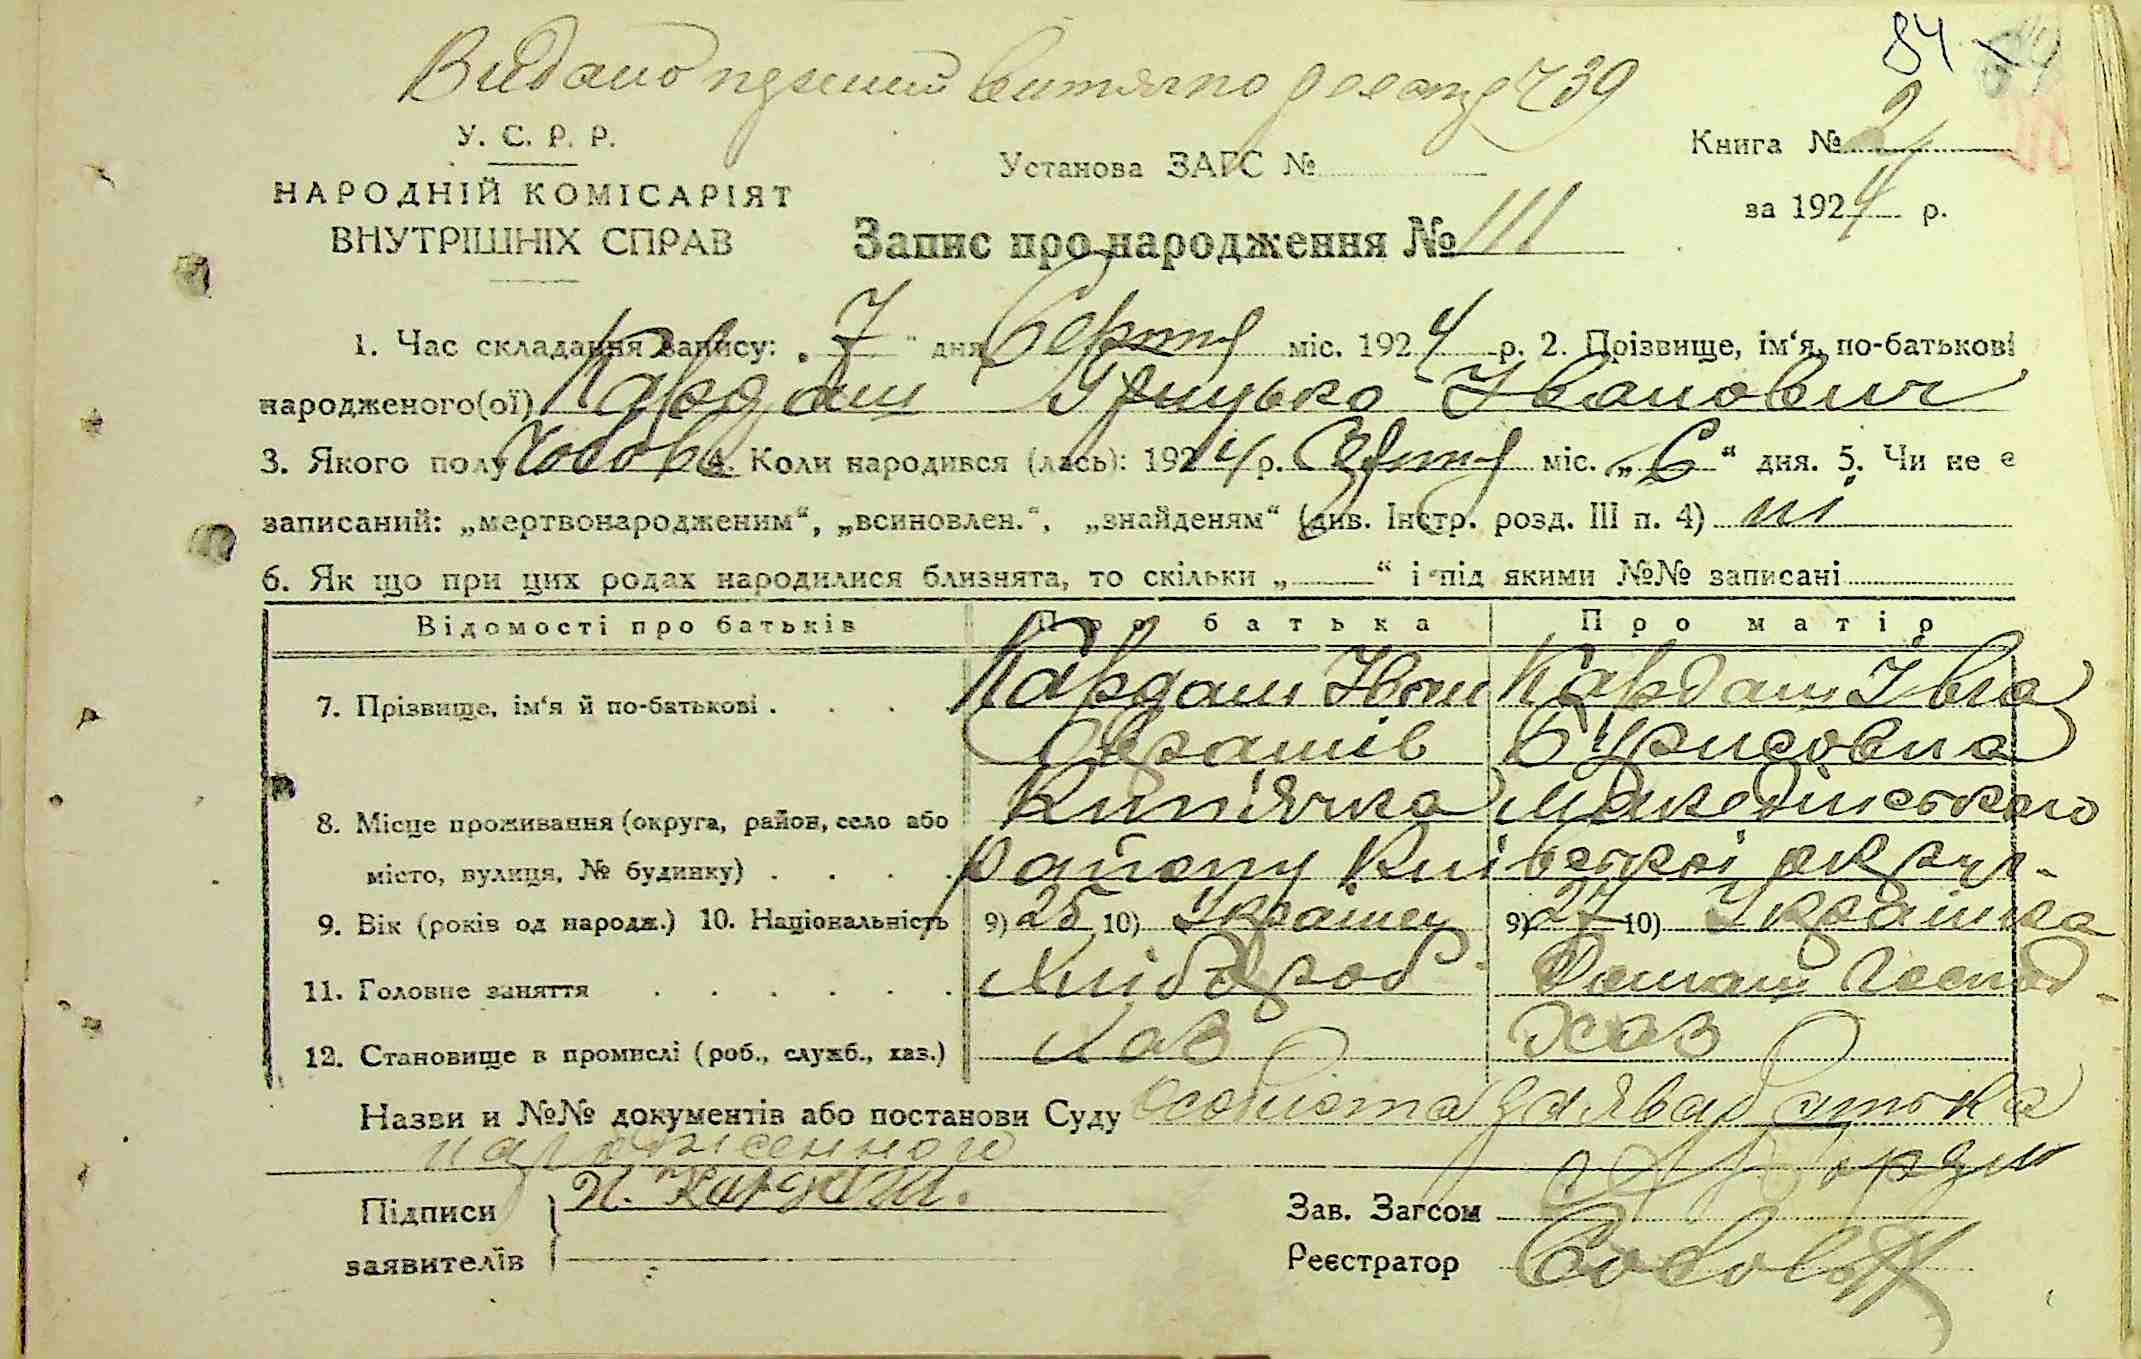 84
Видано
739
У. С. Р. Р.
НАРОДНІЙ КОМІСАРІЯТ
ВНУТРІШНІХ СПРАВ
Установа ЗАГС №
Книга № 2
за 1924 р.
Запис про народження № 111
1. Час складання запису: „7" дня Серпня міс. 1924 р. 2. Прізвище, ім'я, по-батькові
народженого(ої) Кардаш Грицько Іванович
3. Якого полу Чолов. 4. Коли народився (лась): 1924 р. Серпня міс. „6" дня. 5. Чи не є
записаний: „мертвонародженим", „всиновлен.", „знайденям" (див. Інстр. розд. III п. 4) ні
6. Як що при цих родах народилися близнята, то скільки „——" і під якими №№ записані
Відомості про батьків Про батька Про матір
7. Прізвище, ім'я й по-батькові . . . Кардаш Іван Кардаш Івга
Борисовна
8. Місце проживання (округа, район, село або Кип'ячка Македонського
місто, вулиця, № будинку) . . . . району Київської округи
9. Вік (років од народж.) 10. Національність 9) 25 10) Українец 9) 27 10) Українка
11. Головне заняття . . . . . . Хлібороб Домаш Господ.
12. Становище в промислі (роб., служб., хаз.) Хаз Хаз
Назви и №№ документів або постанови Суду особиста заява батька
народженного
Підписи И. Кардаш.
заявителїв
Зав. Загсом
Реєстратор